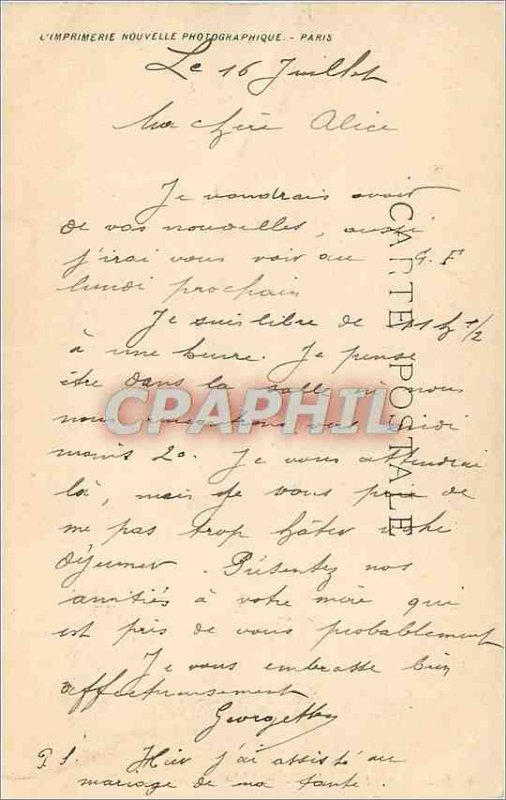 L'IMPRIMERIE NOUVELLE PHOTOGRAPHIQUE. - PARIS
Le 16 Juillet
Ma chère Alice
Je voudrais avoir
de vos nouvelles, aussi
j'irai vous voir au G. F
lundi prochain
Je suis libre de 11 h 1/2
à une heure. Je pense
être dans la salle où nous
nous vers midi
moins 20. Je vous attendrai
là, mais je vous prie de
ne pas trop hâter votre
déjeuner. Présentez nos
amitiés à votre mère qui
est près de vous probablement
Je vous embrasse bien
affectueusement
Georgette
P. S. Hier j'ai assisté au
mariage de ma tante.
CARTE POSTALE
CPAPHIL